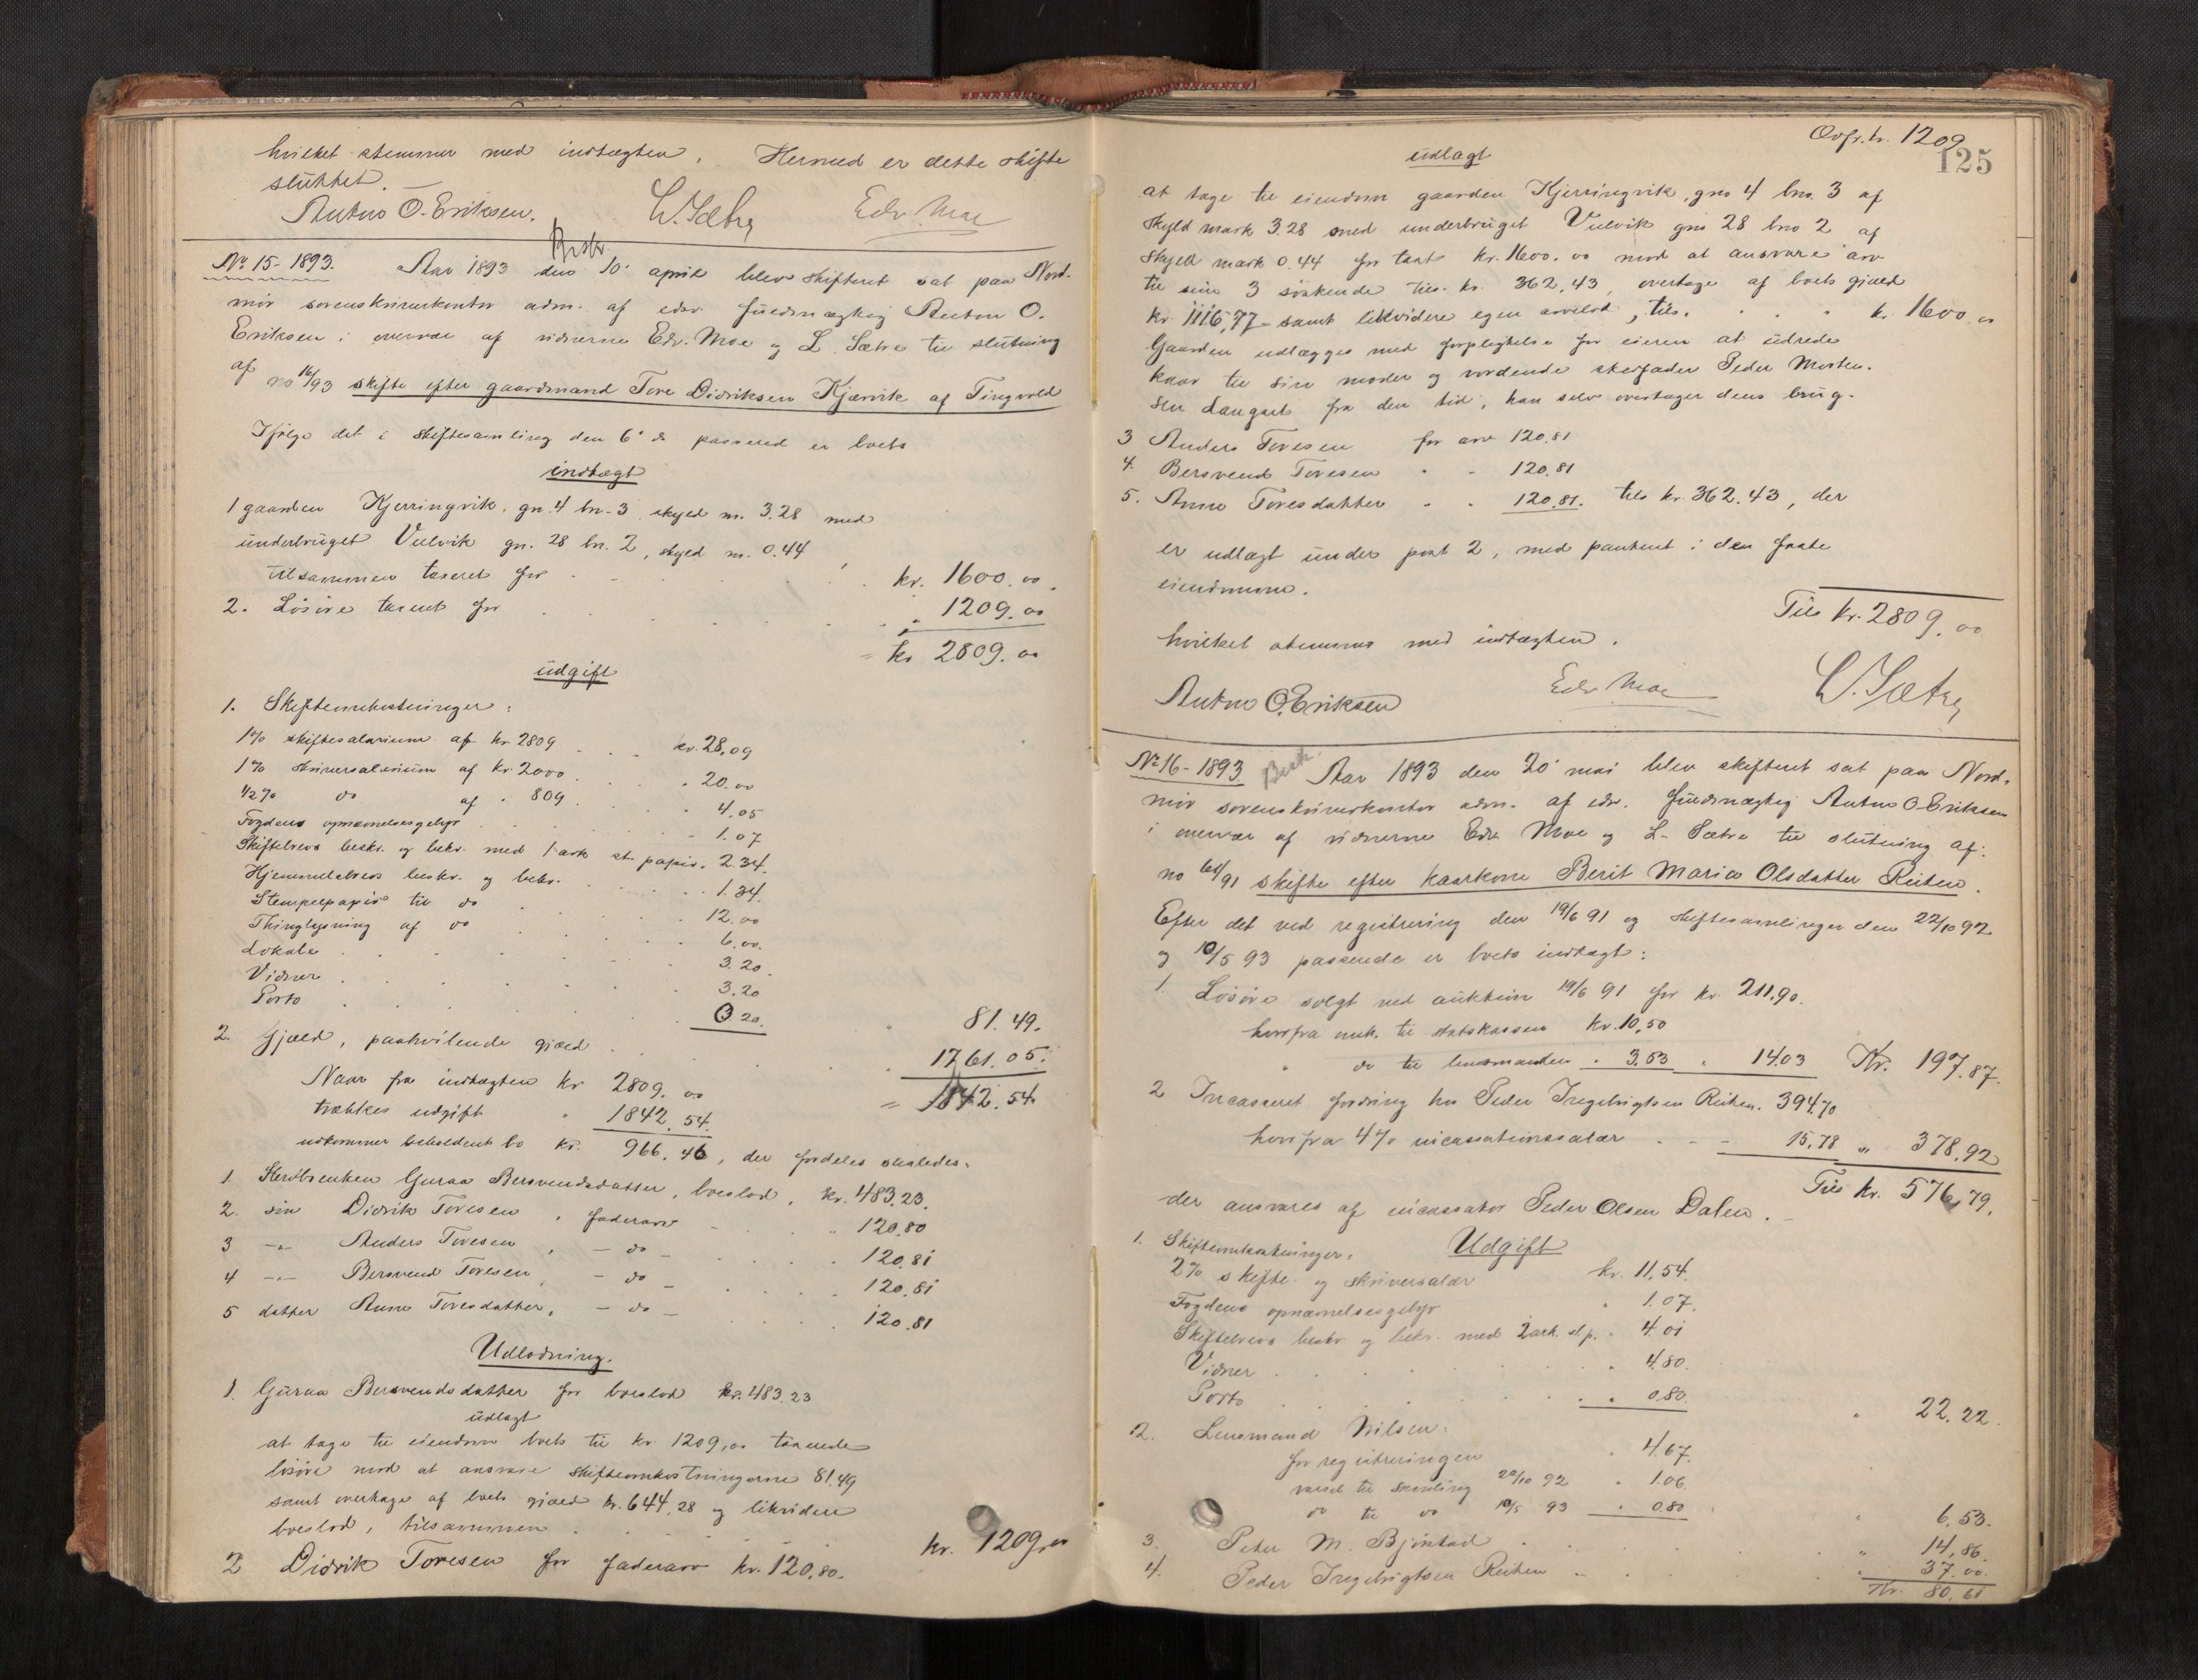 hvilket stemmer med indtægten. Hermed er dette skifte
sluttet.
Anton O. Eriksen. L. Sætre Edv. Moe
Beskr.
No 15 - 1893. Aar 1893 den 10' april blev skifteret sat paa Nord-
mør sorenskriverkontor adm. af edsv. fuldmægtig Anton O.
Eriksen i overvær af vidnerne Edv. Moe og L. Sætre til slutning
af
no 16/93 skifte efter gaardmand Tore Didriksen Kjærvik af Tingvold
Ifølge det i skiftesamling den 6' ds passered er boets
indtægt
1 gaarden Kjerringvik, gn. 4 bn. 3 skyld m. 3.28 med
underbruget Vulvik gn. 28 bn. 2, skyld m. 0.44,
tilsammen taxeret for . . . kr. 1600.00.
2. Løsøre taxeret for . . . " 1209.00
= kr 2809.00
udgift
1. Skifteomkostninger:
1% skiftesalarium af kr. 2809 . . . kr. 28,09
1% skriversalarium af kr. 2000 . . . " 20.00
1/2% do af " 809 . . . " 4,05
Fogdens opnævnelsesgebyr . . . 1.07
Skiftebrevs beskr. og bekr. med 1 ark st. papir. 2.34.
Hjemmelsbrevs beskr. og bekr. . . . 1.34.
Stempelpapir til do . . . 12.00
Thinglysning af do . . . 6.00.
Lokale . . . 3.20.
Vidner . . . 3.20
Porto . . . 0 20. " 81.49.
2. Gjæld, paahvilende gjæld . . . " 1761.05.
= 1842.54.
Naar fra indtægten kr 2809.00
trækkes udgift " 1842.54.
udkommer beholdent bo kr. 966.46, der fordeles saaledes.
1. Enken Guraa Bersvendsdatter, boeslod, kr. 483.23.
2. søn Didrik Toresen, faderarv - " 120.80
3 -"- Anders Toresen, - do - . . . 120.81
4 -"- Bersvend Toresen, - do - . . . 120.81
5 datter Anne Toresdatter, - do - . . . 120.81
Udlodning.
1. Guraa Bersvendsdatter for boeslod kr. 483.23
udlagt
at tage til eiendom boets til kr. 1209,00 taxerede
løsøre mod at ansvare skifteomkostningerne 81.49
samt overtage af boets gjæld kr. 644,28 og likvidere
boeslod, tilsammen . . . kr. 1209,00
2 Didrik Toresen for faderarv kr. 120,80.
Ovfr. kr. 1209
125
udlagt
at tage til eiendom gaarden Kjerringvik, gno 4 bno. 3 af
skyld mark 3.28 med underbruget Vulvik gno 28 bno 2 af
skyld mark 0.44 for taxt kr. 1600.00 mod at ansvare arv
til sine 3 søskende tils. kr. 362,43, overtage af boets gjæld
kr. 1116,77 samt likvidere egen arvelod, tils. . . . kr. 1600,00
Gaarden udlægges med forpligtelse for eieren at udrede
kaar til sin moder og vordende stedfader Peder Morten-
sen Langset fra den tid, han selv overtager dens brug.
3 Anders Toresen for arv 120.81
4. Bersvend Toresen " " 120.81
5. Anne Toresdatter " " 120.81. tils kr. 362.43, der
er udlagt under post 2, med panteret i den faste
eiendomme.
Tils kr. 2809.00
hvilket stemmer med indtægten.
Anton O. Eriksen Edv. Moe L. Sætre
No 16 - 1893 Besk Aar 1893 den 20' mai blev skifteret sat paa Nord-
mør sorenskriverkontor adm. af edsv. fuldmægtig Anton O. Eriksen
i overvær af vidnerne Edv Moe og L. Sætre til slutning af:
no 64/91 skifte efter kaarkone Berit Maria Olsdatter Reiten.
Efter det ved registrering den 19/6 91 og skiftesamlinger den 22/10 92
og 10/5 93 passerede er boets indtægt:
1. Løsøre solgt ved auktion 19/6 91 for kr. 211.90.
herfra omk. til statskassen kr. 10.50
" do til lensmanden " 3.53 " 14.03 Kr. 197.87.
2 Incasseret fordring hos Peder Ingebrigtsen Reiten. 394.70
herfra 4% incassationssalær . - - 15.78 " 378.92
Tils kr. 576,79.
der ansvares af incassator Peder Olsen Dalen. -
Udgift
1. Skifteomkostninger.
2% skifte- og skriversalær kr. 11,54.
Fogdens opnævnelsesgebyr " 1.07.
Skiftebrevs beskr og bekr. med 2 ark. st.p. " 4.01
Vidner . . . " 4.80.
Porto . . . " 0.80. " 22.22.
2. Lensmand Nilsen:
for registreringen " 4.67.
varsel til samling 22/10 92 " 1.06.
do til do 10/5 93 " 0.80 " 6.53.
3. Peter M. Bjørstad . . . " 14,86.
4. Peder Ingebrigtsen Reiten . . . " 37.00.
Kr. 80.61